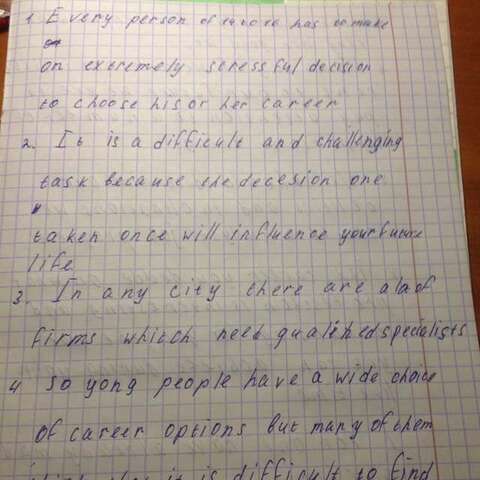 1. Every person of has to make
on extremely stressful decision
to choose his or her career
2. It is a difficult and challenging
task because the decesion one
taken once will influence your future
life
3. In any city there are a lot of
firms which need qualified specialists
4 so yong people have a wide choice
of career options but many of them
it is difficult to find